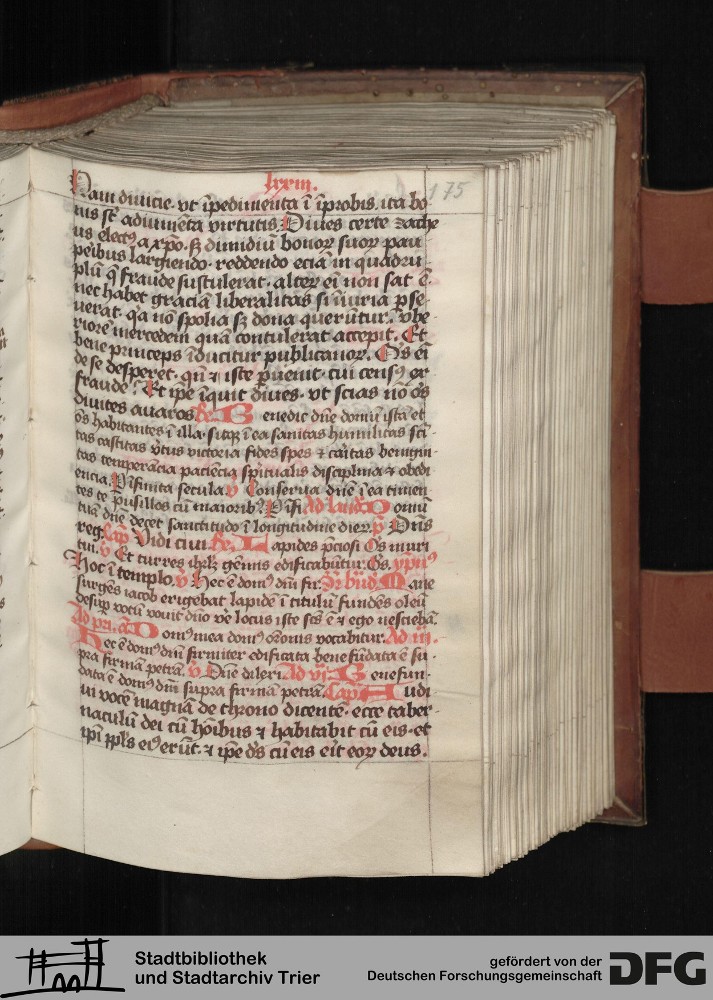 lxxiii.
175
Nam diuicie vt ī̄pedimenta ī īprobis, ita bo
nis st̄ adiumēta virtutis. Diues certe zache
us elect⁹ a xp̄o. sꝫ dimidiū bonoꝝ suoꝝ pau
peribus largiendo. reddendo eciā in quadru
plū q̄ fraude sustulerat. alterꝫ eī non sat ē.
nec habet graciā liberalitas si iniuria ꝑse
uerat. qꝛ nō spolia sꝫ dona querūtur. vbe
riorē mercedem quā contulerat accepit. Et
bene princeps īducitur publicanoꝝ. Q's eī
de se desperet. qn̄ ⁊ iste ꝑuenit. cui cens⁹ ex
fraude? Et ip̄e īquit diues. vt scias nō oēs
diuites auaros. Re. Benedic dn̄e domū istā et
oēs habitantes ī illa. sitqꝫ ī ea sanitas humilitas scī
tas castitas v̓tus victoria fides spes ⁊ caritas benigni
tas temperācia paciēcia sp̄itualis disciplina ⁊ obedi
encia. P īfinita secula. v̓ Conserua dn̄e ī ea timen
tes te pusillos cū maiorib⁹. P īfi. Ad laud' Domū
tuā dn̄e decet sanctitudo ī longitudinē dierꝝ. p̄ Dn̄s
reg. Cap̄. Vidi ciui. Re. Lapides p̄ciosi Os muri
tui. v̓ Et turres ihrl̄z gēmis edificabūtur. Os. ypn⁹
Hoc ī templo. v̓ Hec ē dom⁹ dn̄i fir. Sr̄ bn̄d' Mane
surgēs iacob erigebat lapidē ī titulū fundēs oleū
desuꝑ votū vouit dn̄o ve̓ locus iste scs̄ ē ⁊ ego nesciebā.
Ad pri. añ Dom⁹ mea dom⁹ or̄onis vocabitur. Ad iii.
Hec ē dom⁹ dn̄i firmiter edificata bene fūdata ē su
pra firmā petrā. v̓ Dn̄e dilexi. Ad vi Bene fun
data ē dom⁹ dn̄i supra firmā petrā. Cap̄m Audi
ui vocē magnā de throno dicentē. ecce taber
naculū dei cū hoībus ⁊ habitabit cū eis. et
ip̄i ppl̄s ei⁹ erūt. ⁊ ip̄e d̄s cū eis erit eoꝝ deus.
Stadtbibliothek
und Stadtarchiv Trier
gefördert von der
Deutschen Forschungsgemeinschaft DFG